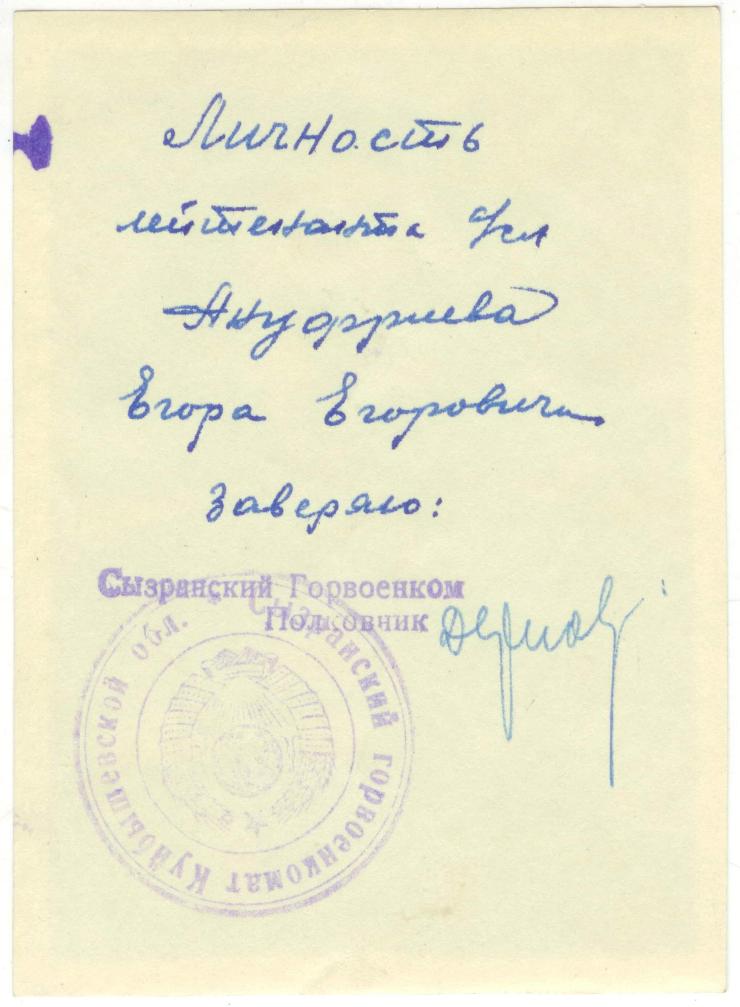 Личность
лейтенанта
Ануфриева
Егора Егоровича
Заверяю:
Сызранский Горвоенком
Полковник
Сызранский горвоенкомат Куйбышевской обл.